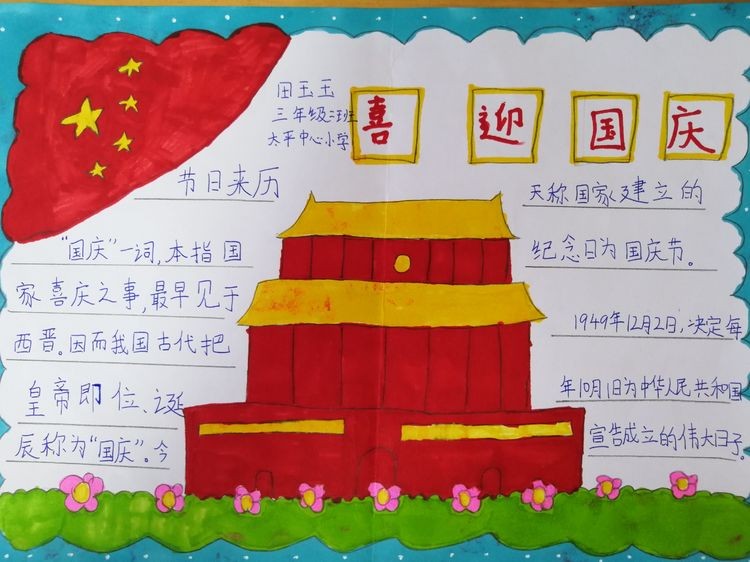 喜迎国庆
田玉玉
三年级班
太平中心小学
节日来历
"国庆"一词,本指国
家喜庆之事,最早见于
西晋。因而我国古代把
皇帝即位、诞
辰称为"国庆"。今
天称国家建立的
纪念日为国庆节。
1949年12月2日,决定每
年10月1日为中华人民共和国
宣告成立的伟大日子。